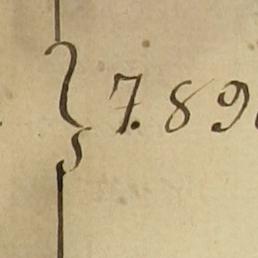 } 7.89